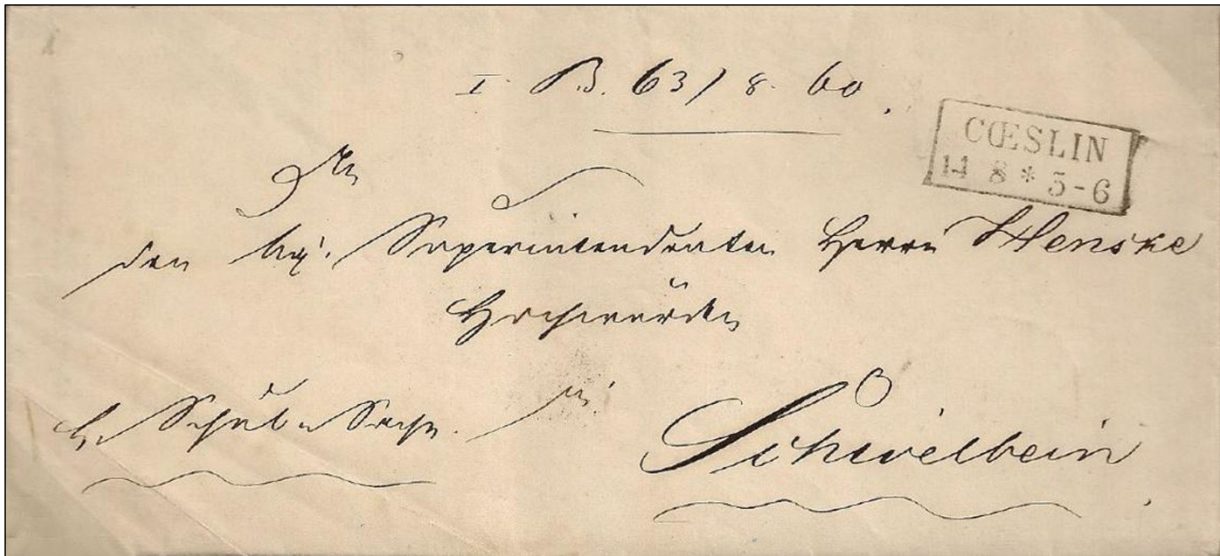 I. B. 63/8. 60.
CŒSLIN
14 8 * 5-6
An
den Superintendenten Herrn Henske
Hochwürden
Schul-Sache. zu
Schivelbein